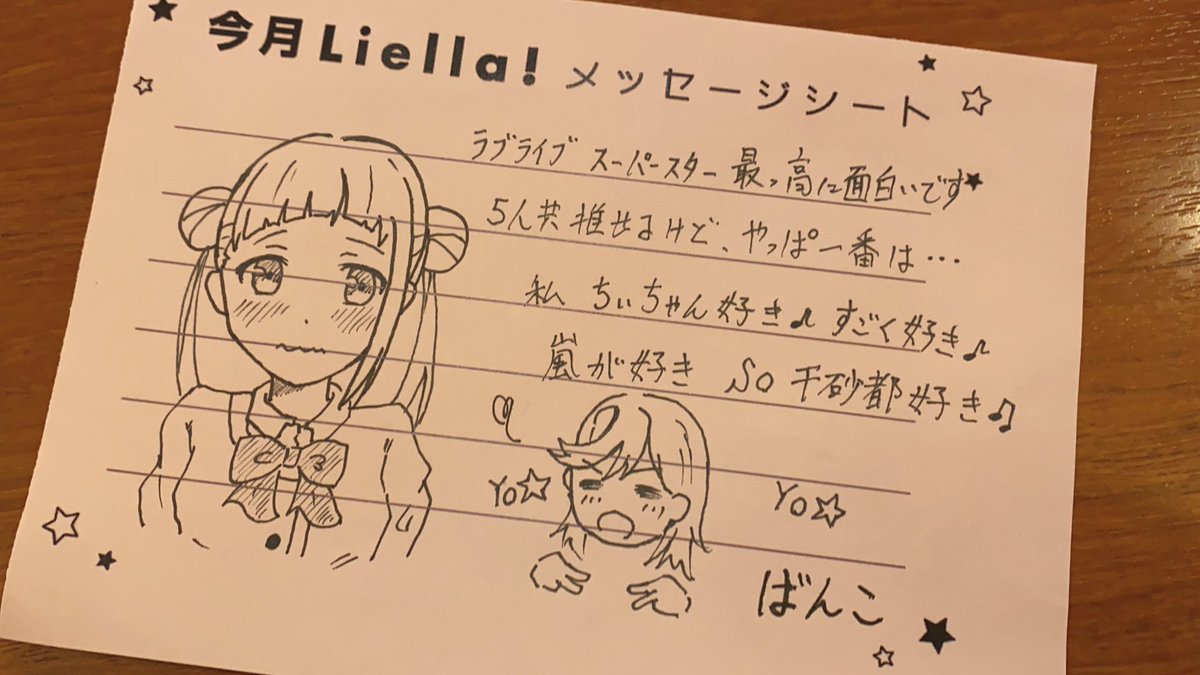 今月Liella! メッセージシート
ラブライブ スーパースター 最っ高に面白いです
5人共推せるけど、やっぱ一番は…
私 ちぃちゃん好き♪ すごく好き♪
嵐が好き So 千砂都好き♫
Yo☆ Yo☆
ばんこ